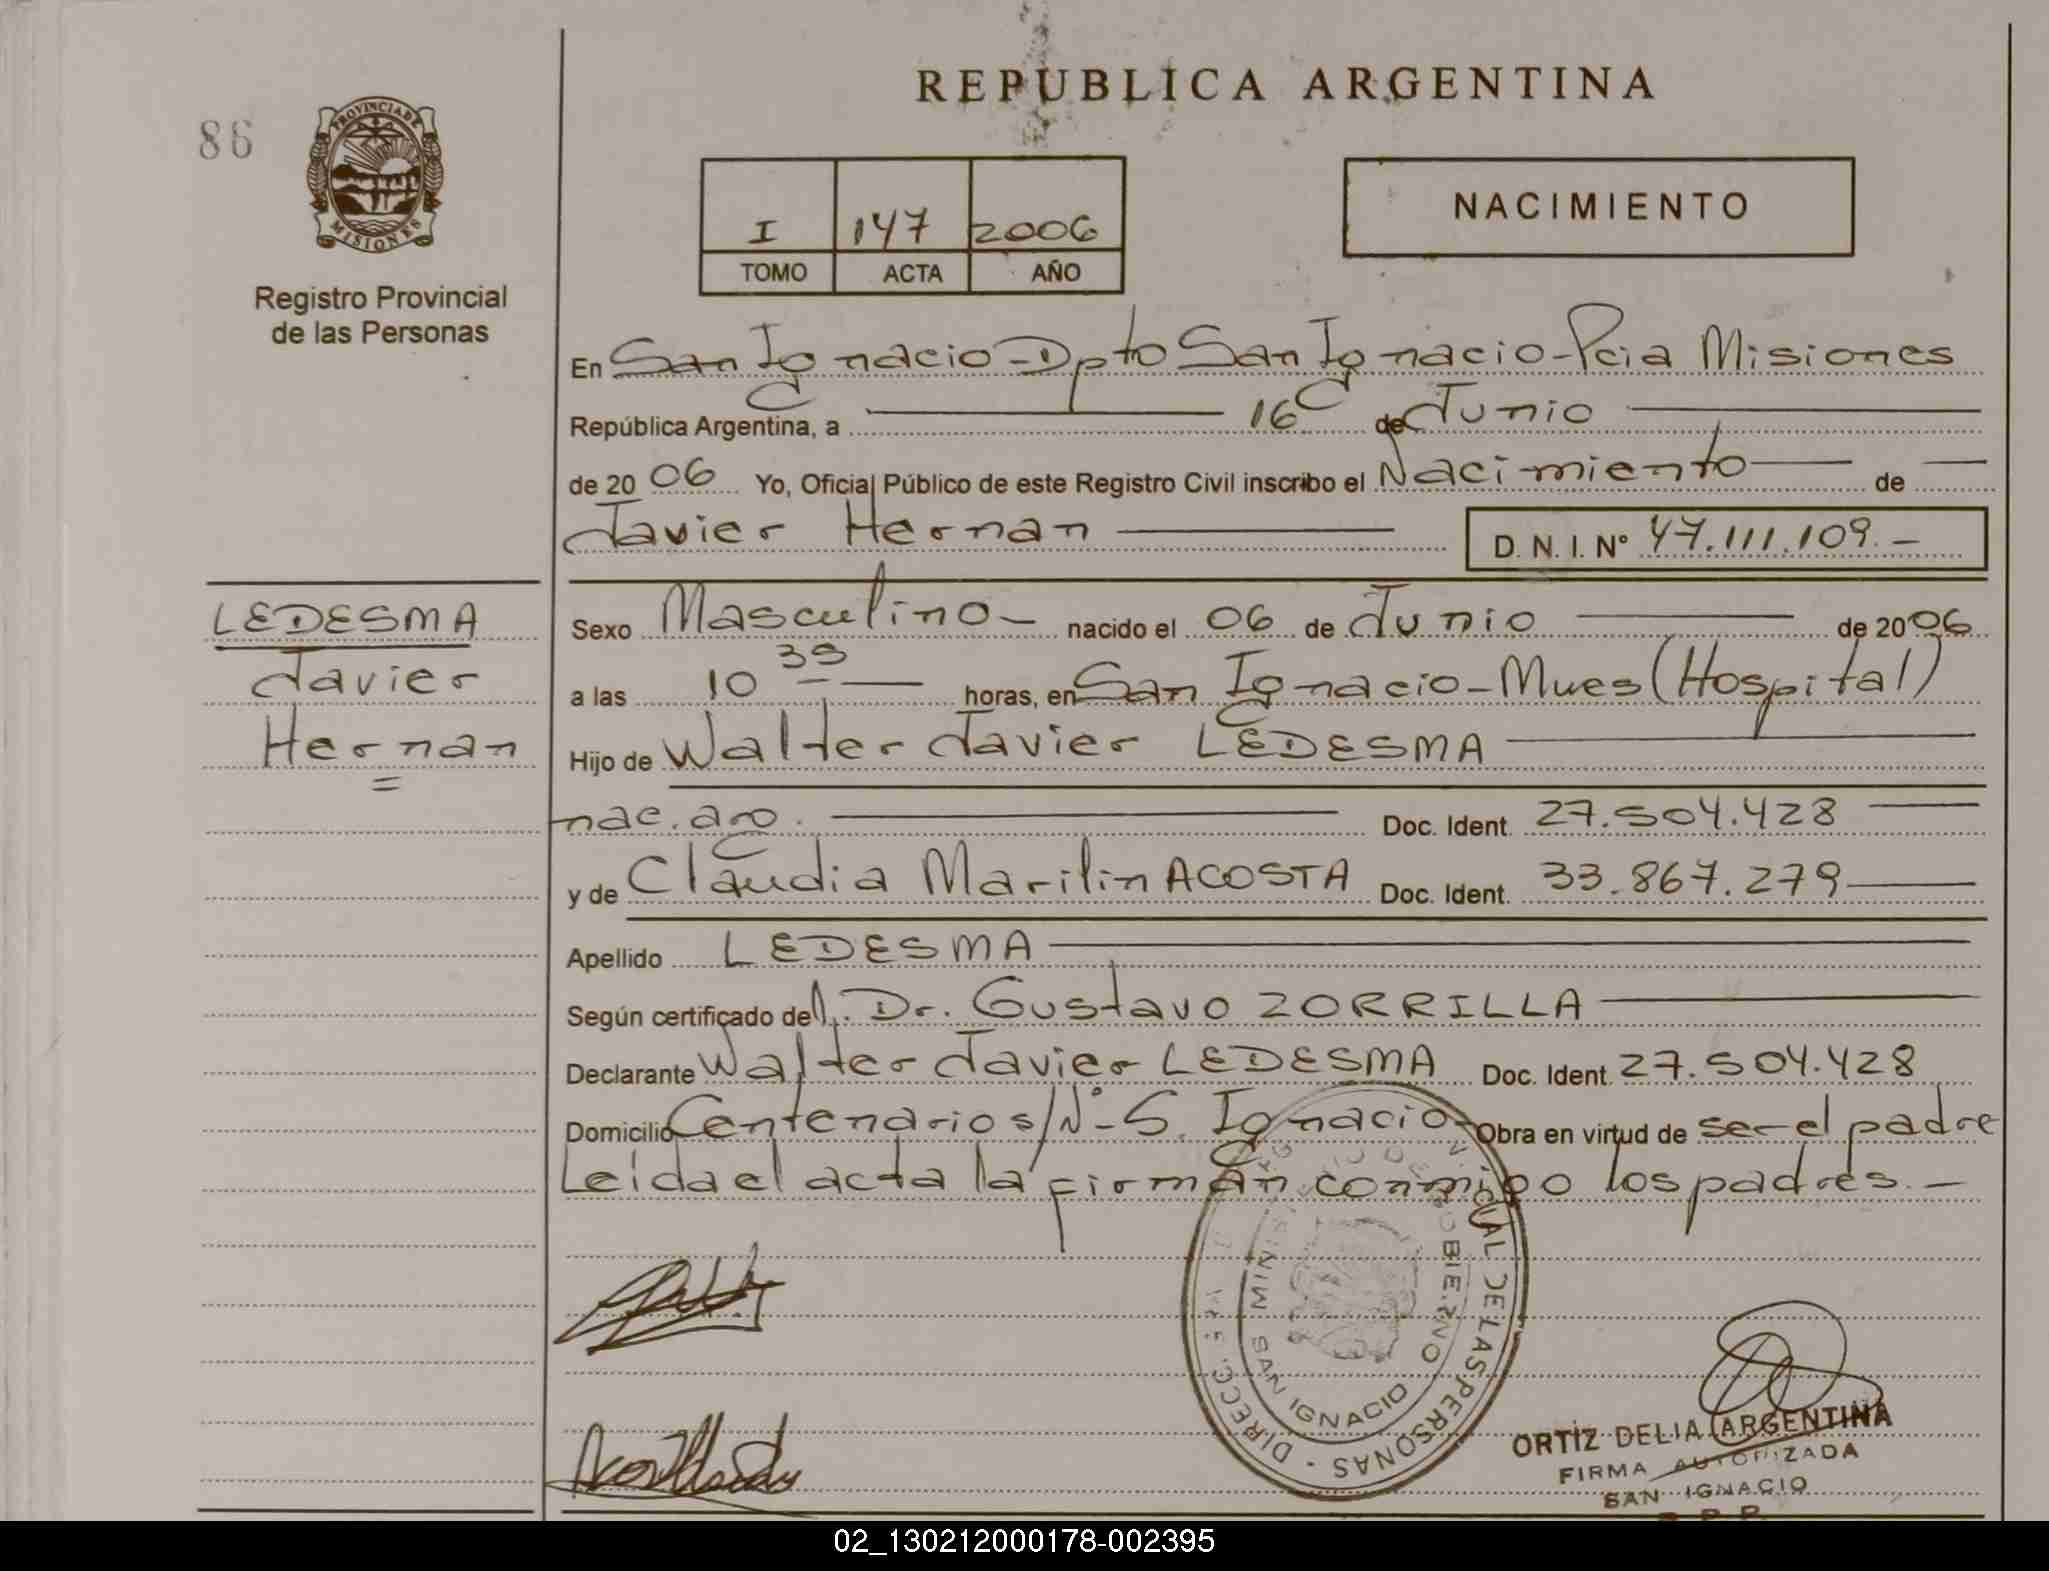 REPUBLICA ARGENTINA
86
PROVINCIA DE
MISIONES
Registro Provincial
de las Personas
I 147 2006
TOMO ACTA AÑO
NACIMIENTO
En San Ignacio - Dpto San Ignacio - Pcia Misiones
República Argentina, a 16 de Junio
de 20 06 Yo, Oficial Público de este Registro Civil inscribo el Nacimiento de
Javier Hernan D. N. I. N° 47.111.109.-
LEDESMA
Javier
Hernan
Sexo Masculino - nacido el 06 de Junio de 20 06
a las 10 35 horas, en San Ignacio - Mnes (Hospital)
Hijo de Walter Javier LEDESMA
nac. arg. Doc. Ident. 27.504.428
y de Claudia Marilin ACOSTA Doc. Ident. 33.867.279
Apellido LEDESMA
Según certificado del. Dr. Gustavo ZORRILLA
Declarante Walter Javier LEDESMA Doc. Ident. 27.504.428
Domicilio Centenario s/N°- S. Ignacio - Obra en virtud de ser el padre
Leida el acta la firman conmigo los padres. -
DE LAS PERSONAS
GOBIERNO
SAN IGNACIO
ORTIZ DELIA ARGENTINA
FIRMA AUTORIZADA
SAN IGNACIO
02_130212000178-002395